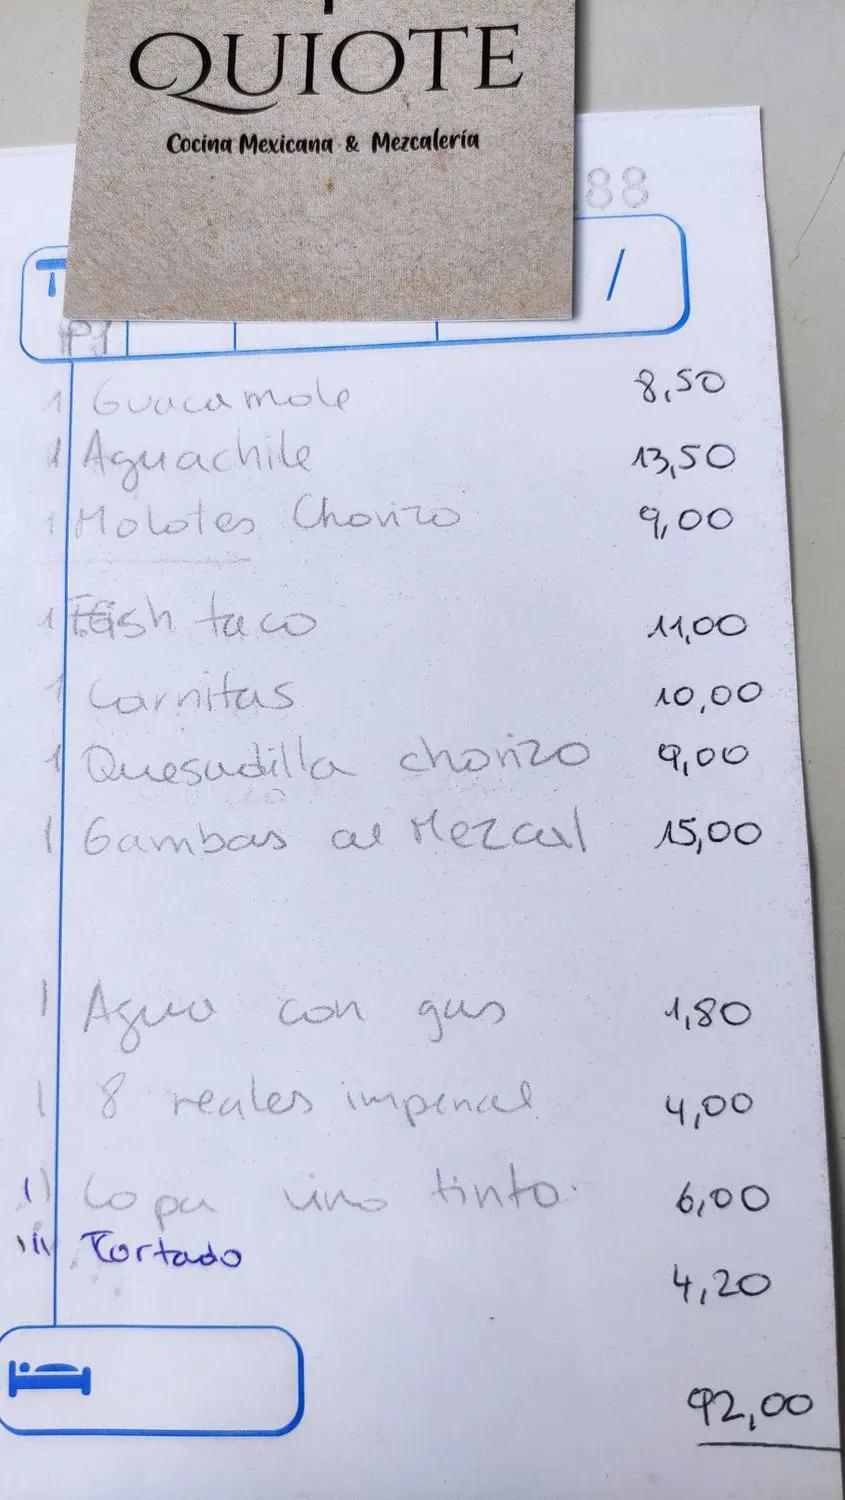 QUIOTE
Cocina Mexicana & Mezcalería
88
/
P1
1 Guacamole 8,50
1 Aguachile 13,50
1 Molotes Chorizo 9,00
1 Fish taco 11,00
1 Carnitas 10,00
1 Quesadilla chorizo 9,00
1 Gambas al Mezcal 15,00
1 Agua con gas 1,80
1 8 reales imperial 4,00
11 Copa vino tinto. 6,00
111 Cortado 4,20
92,00